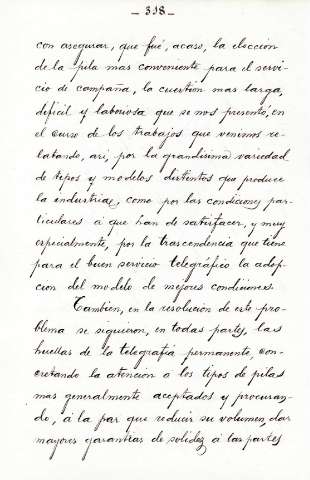 - 338 -
con asegurar, que fué, acaso, la elección
de la pila mas conveniente para el servi-
cio de campaña, la cuestion mas larga,
dificil y laboriosa que se nos presentó, en
el curso de los trabajos que venimos re-
latando, asi, por la grandisima variedad
de tipos y modelos distintos que produce
la industria, como por las condiciones par-
ticulares á que han de satisfacer, y muy
especialmente, por la trascendencia que tiene
para el buen servicio telegráfico la adop-
cion del modelo de mejores condiciones.
Tambien, en la resolucion de este pro-
blema se siguieron, en todas partes, las
huellas de la telegrafia permanente, con-
cretando la atencion á los tipos de pilas
mas generalmente aceptados y procuran-
do, á la par que reducir su volumen, dar
mayores garantias de solidez á las partes